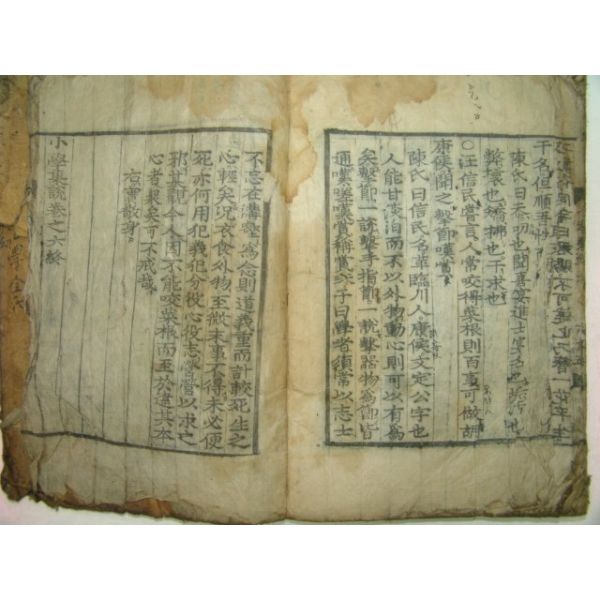 曰不可違也簪一花平生
干名但順吾性
陳氏曰忝叨也聞喜宴進士宴名也
弊壞也矯拂也干求也
○汪信民嘗言人常咬得菜根則百事可做胡
康侯聞之擊節嘆賞
陳氏曰信民名革臨川人康侯文定公字也
人能甘淡泊而不以外物動心則可以有爲
矣擊節一說擊手指節一說擊器物爲節皆
通嘆嗟嘆賞稱賞朱子曰學者須常以志士
不忘在溝壑爲念則道義重而計較死生之
心輕矣況衣食外物至微末事不得未必便
死亦何用犯義犯分役心役志營營以求之
邪某觀今人因不能咬菜根而至於違其本
心者衆矣可不戒哉
右實敬身
小學集說卷之六終